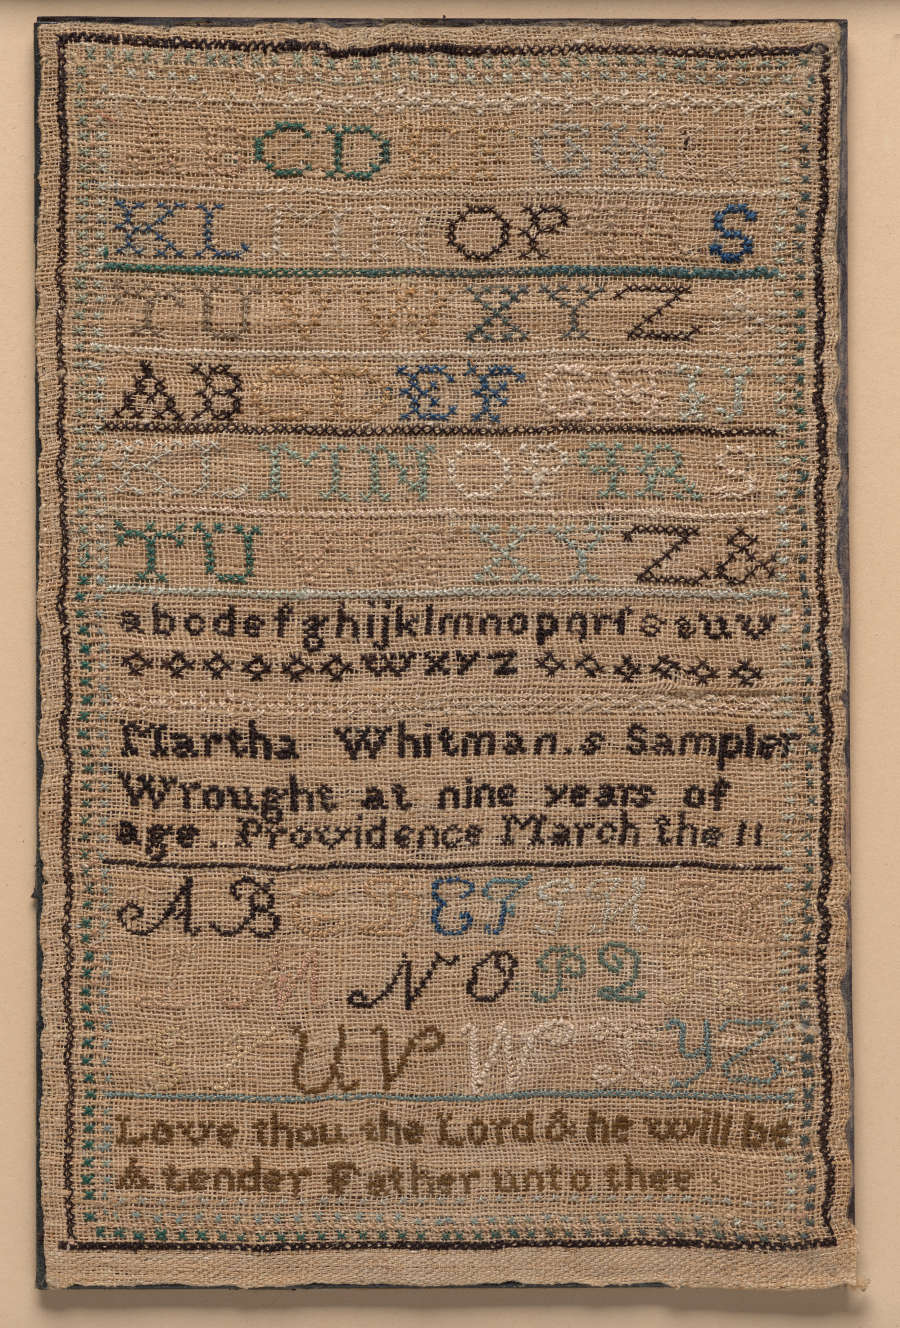 A B C D E F G H I
K L M N O P Q R S
T U V W X Y Z
A B C D E F G H I J
K L M N O P Q R S
T U V W X Y Z &
a b c d e f g h i j k l m n o p q r ſ s t u v
w x y z
Martha Whitman.s Sampler
Wrought at nine years of
age. Providence March the 11
A B C D E F G H I K
L M N O P Q R S
T U V W X Y Z
Love thou the Lord & he will be
A tender Father unto thee.